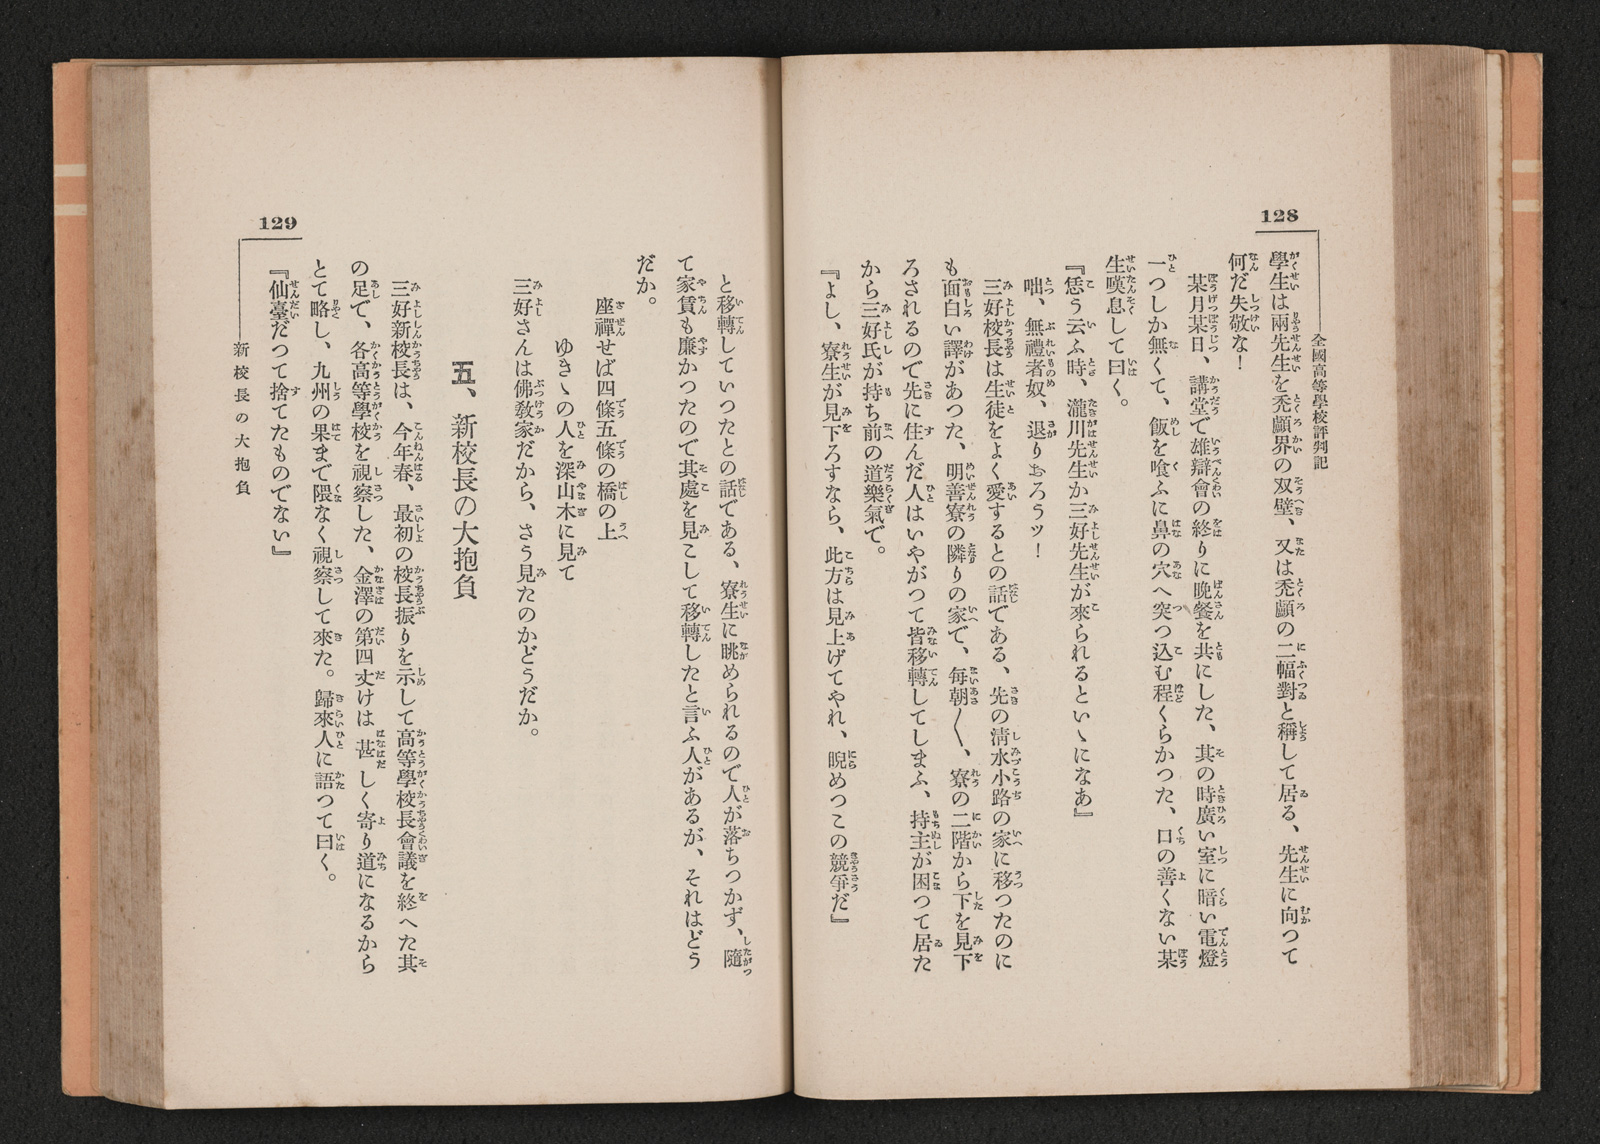 128
全國高等學校評判記
學生は兩先生を禿顱界の双壁、又は禿顱の二幅對と稱して居る、先生に向つて
何だ失敬な！
某月某日、講堂で雄辯會の終りに晩餐を共にした、其の時廣い室に暗い電燈
一つしか無くて、飯を喰ふに鼻の穴へ突つ込む程くらかつた、口の善くない某
生嘆息して曰く。
『恁う云ふ時、瀧川先生か三好先生が來られるといゝになあ』
咄、無禮者奴、退りおろうッ！
三好校長は生徒をよく愛するとの話である、先の淸水小路の家に移つたのに
も面白い譯があつた、明善寮の隣りの家で、毎朝〱、寮の二階から下を見下
ろされるので先に住んだ人はいやがつて皆移轉してしまふ、持主が困つて居た
から三好氏が持ち前の道樂氣で。
『よし、寮生が見下ろすなら、此方は見上げてやれ、睨めつこの競爭だ』
と移轉していつたとの話である、寮生に眺められるので人が落ちつかず、隨
て家賃も廉かつたので其處を見こして移轉したと言ふ人があるが、それはどう
だか。
座禪せば四條五條の橋の上
ゆきゝの人を深山木に見て
三好さんは佛敎家だから、さう見たのかどうだか。
五、新校長の大抱負
三好新校長は、今年春、最初の校長振りを示して高等學校長會議を終へた其
の足で、各高等學校を視察した、金澤の第四丈けは甚しく寄り道になるから
とて略し、九州の果まで隈なく視察して來た。歸來人に語つて曰く。
『仙臺だつて捨てたものでない』
129
新校長の大抱負